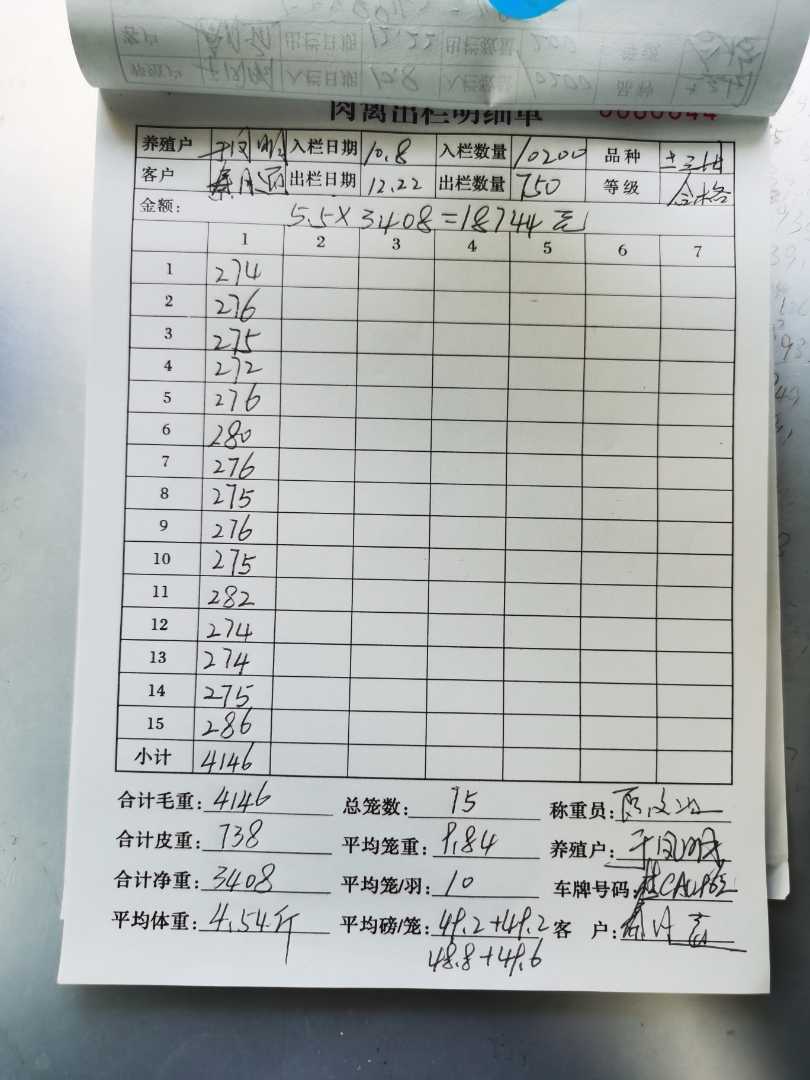 客户 出栏日期 12.22 出栏数量 等级
养殖户 入栏日期 10.8 入栏数量 10200 品种
肉禽出栏明细单
养殖户 入栏日期 10.8 入栏数量 10200 品种
客户 出栏日期 12.22 出栏数量 750 等级 合格
金额: 5.5×3408=18744元
1 2 3 4 5 6 7
1 274
2 276
3 275
4 272
5 276
6 280
7 276
8 275
9 276
10 275
11 282
12 274
13 274
14 275
15 286
小计 4146
合计毛重: 4146 总笼数: 75 称重员:
合计皮重: 738 平均笼重: 9.84 养殖户:
合计净重: 3408 平均笼/羽: 10 车牌号码:
平均体重: 4.54斤 平均磅/笼: 49.2+49.2 客 户:
48.8+49.6